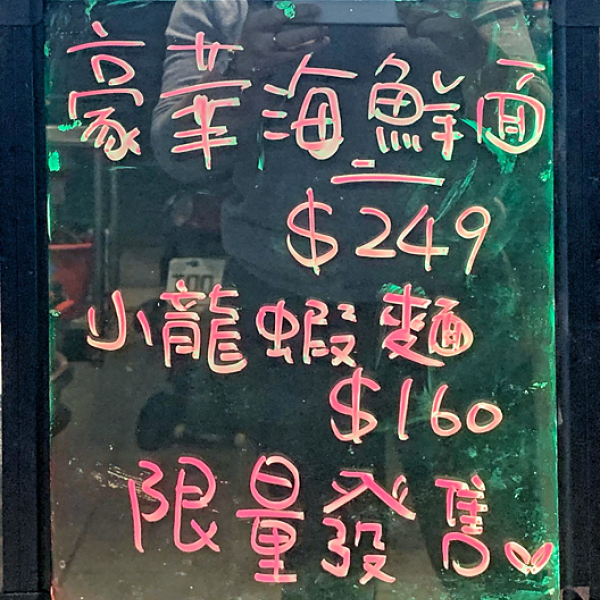 豪華海鮮面
$249
小龍蝦麵
$160
限量發售